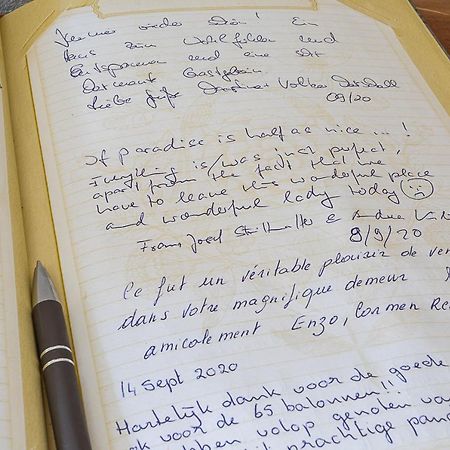 Immer wieder schön! Ein
Haus zum Wohlfühlen und
Entspannen und eine
charmante Gastgeberin
Liebe Grüße Volker
09/20
If paradise is half as nice ... !
Everything is/was just perfect,
apart from the fact that we
have to leave this wonderful place
and wonderful lady today
Franz Josef &
9/9/20
Ce fut un véritable plaisir de ven
dans votre magnifique demeur
amicalement Enzo, Carmen Re
14 Sept 2020
Hartelijk dank voor de goede
ok voor de 65 balonnen!!
bben volop genoten va
prachtige pan